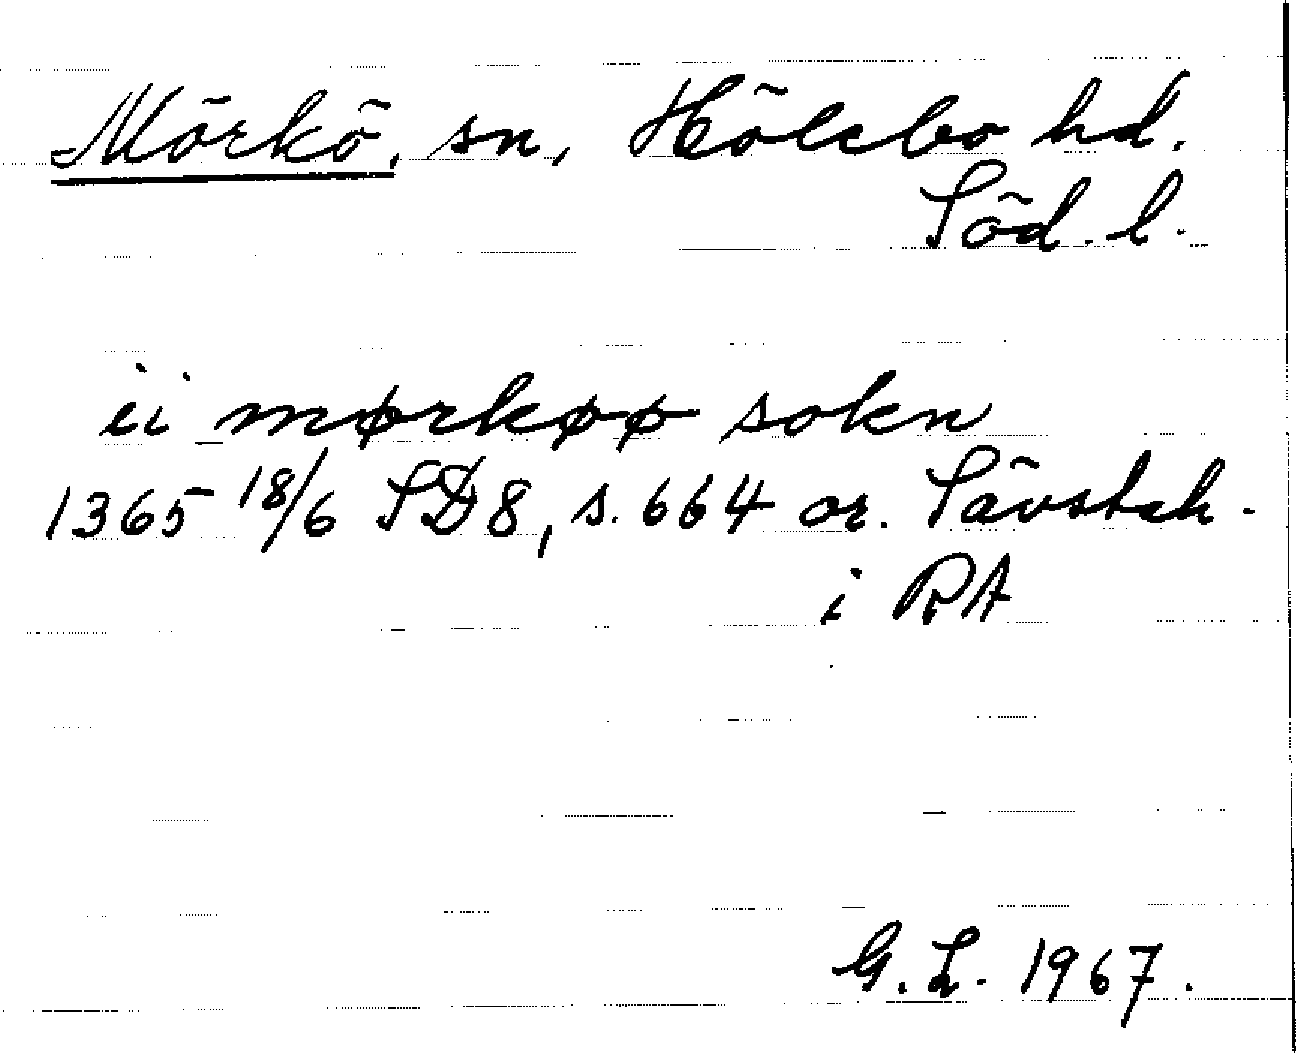 Mörkö, sn, Hölebo hd.
Söd. l.
ii mørkøø sokn
1365 18/6 SD8, s. 664 or. Sävstah.
i RA
G. L. 1967.